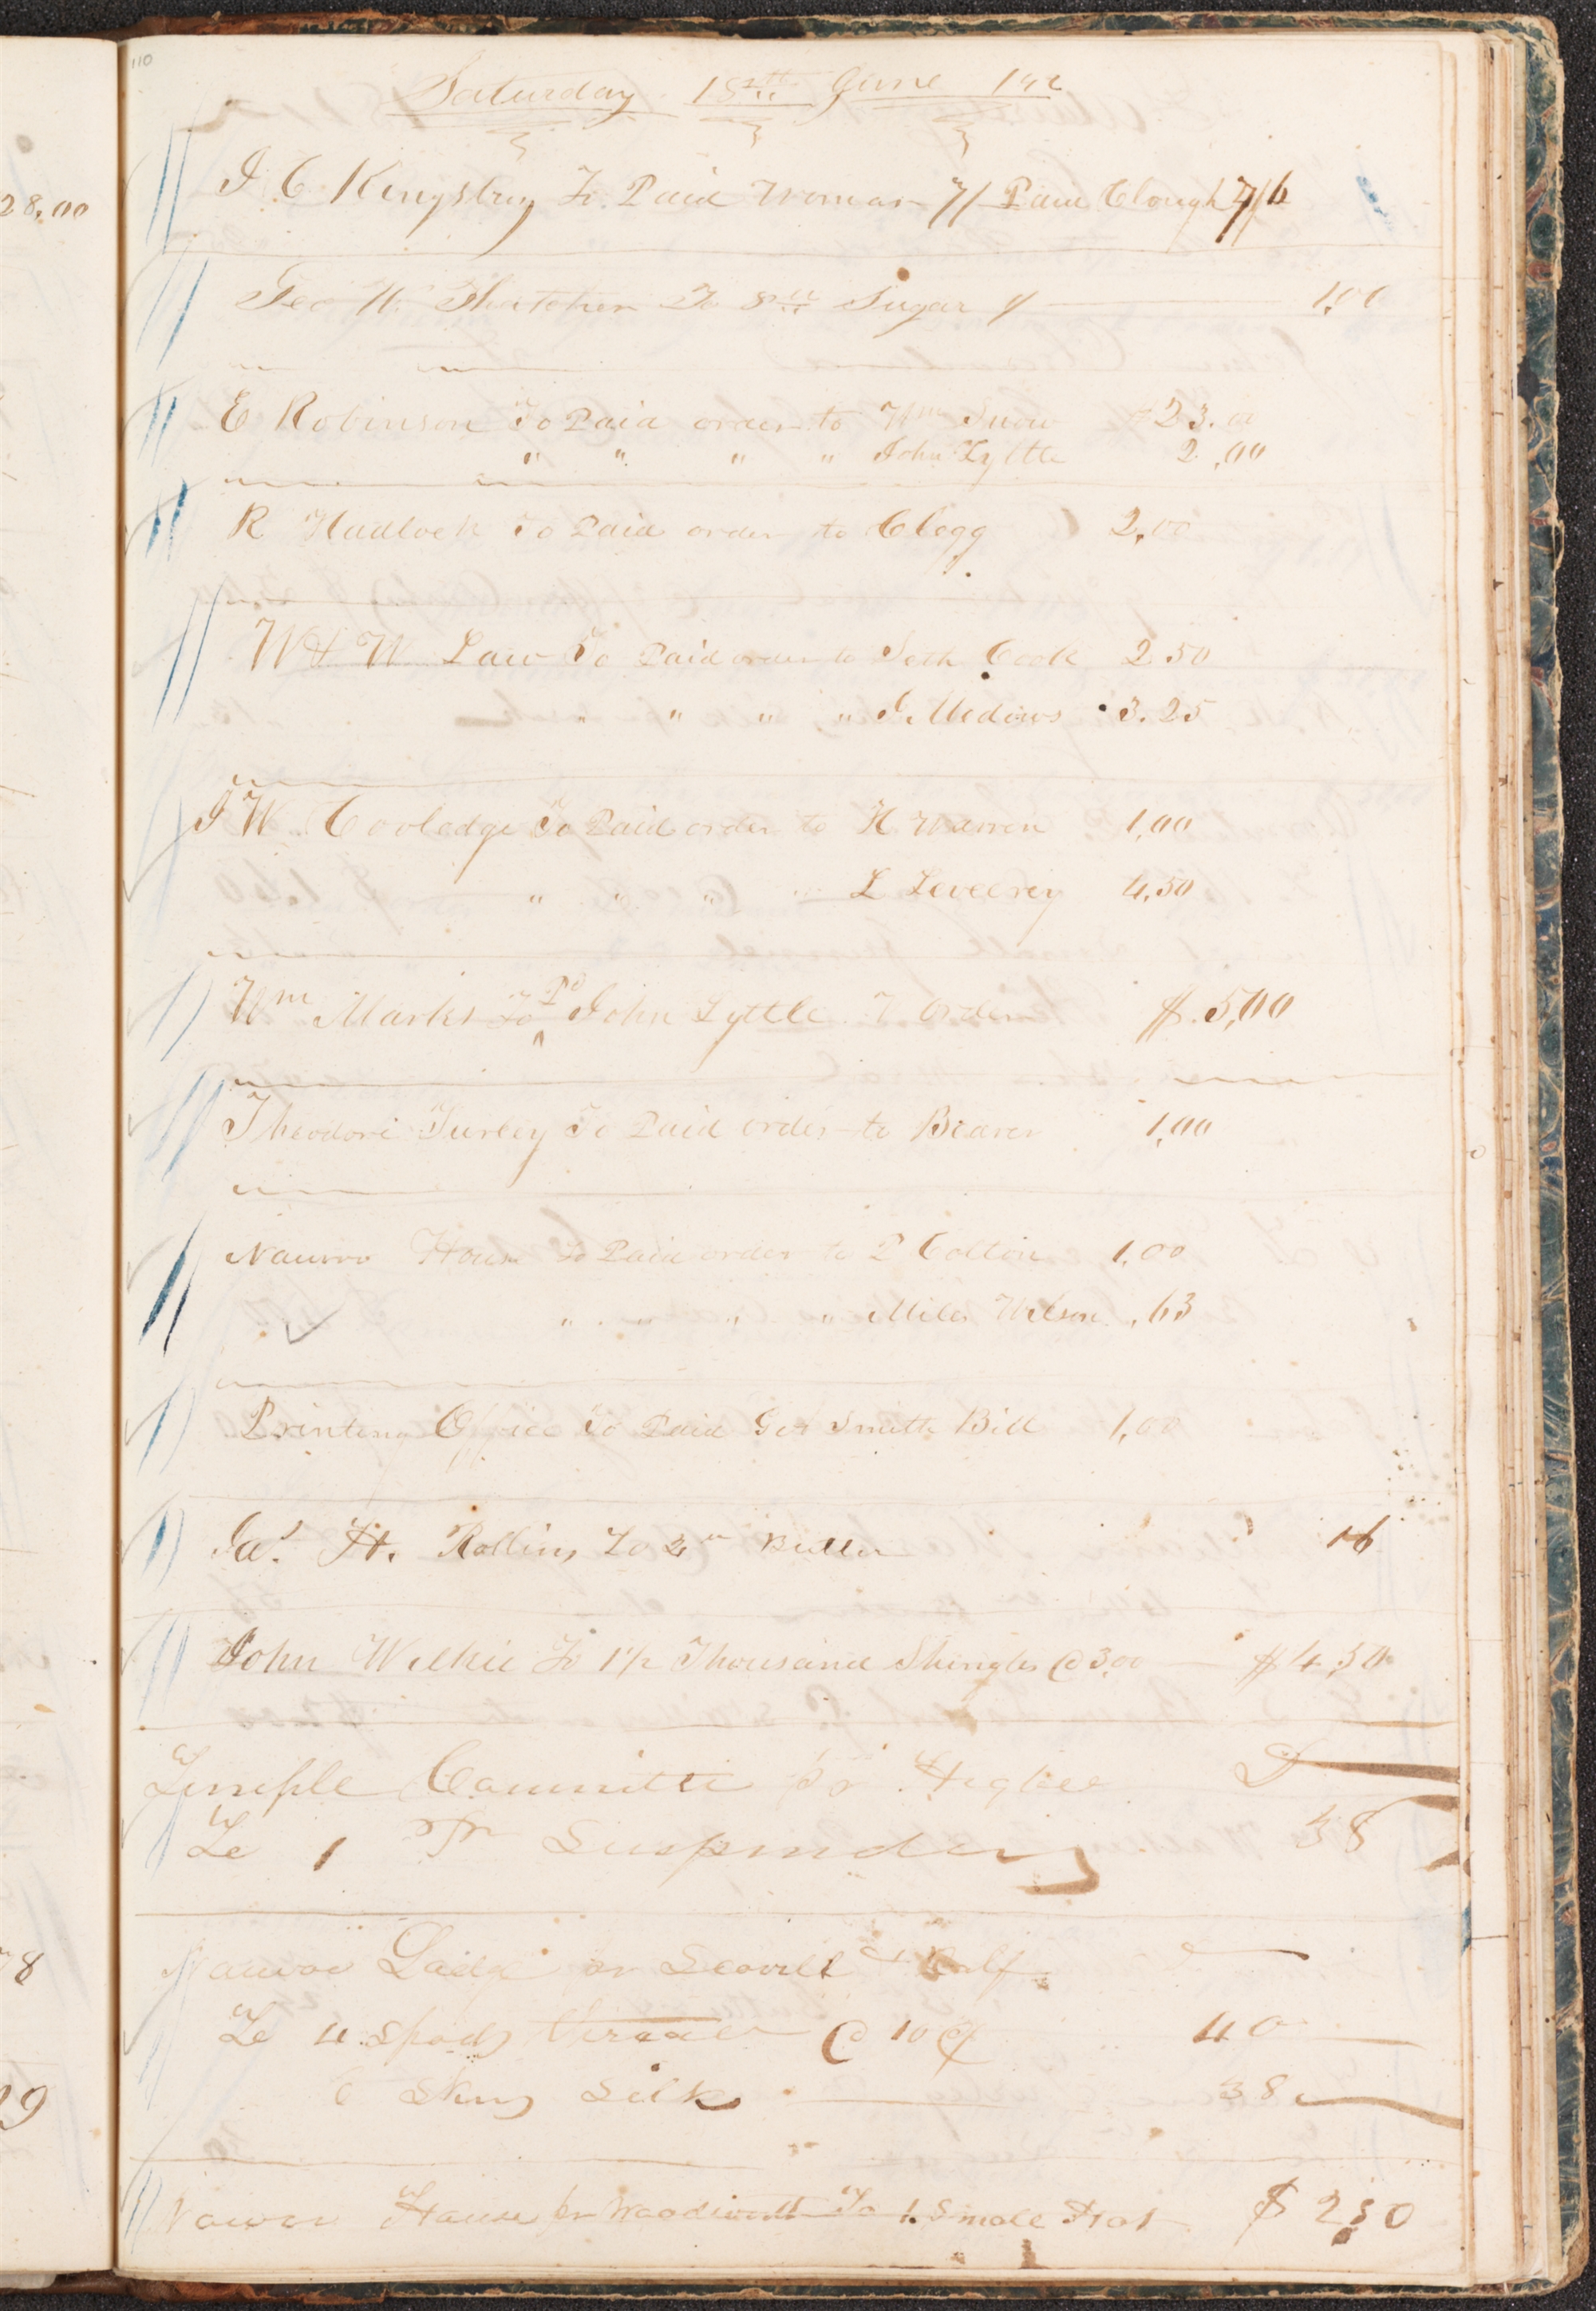 110
Saturday 18th June 142
28,00
J C Kingsbury To Paid Woman 7/ Paid Clough 7/6
Geo W. Thatcher To 8 lb Sugar 1,00
E Robinson To Paid order to Wm Snow $23.00
" " " " John Lyttle 2,00
R Hadlock To Paid order to Clegg 2,00
W & W Law To Paid order to Seth Cook 2 50
" " " " J. Medows 3.25
J W Cooledge To Paid order to H Warren 1,00
" " " " L 4,50
Wm Marks To Pd John Lyttle order $.5,00
Theodore Turley To Paid order to Bearer 1,00
Nauvoo House To Paid order to P Colton 1,00
" " " " Miles Wilson ,63
Printing Office To Paid Geo Smith Bill 1,00
Jas. H. Rollins To 2 lb Butter 16
John Wilkie To 1 1/2 Thousand Shingles @ 3,00 $4,50
Temple Committee pr Higbee D
To 1 Pr Suspenders 38
Nauvoo Lodge pr Scovill &
78
To 4 Spools Thread @ 10 ¢ 40
6 Skns Silk 38
29
Nauvoo House pr Woodworth To 1 Smole Hat $ 2,50